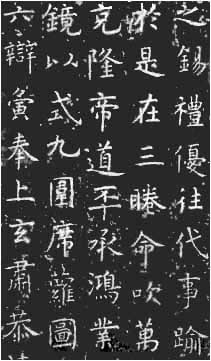 之錫禮優往代事踰
於是在三勝命吹萬
克隆帝道丕承鴻業
鏡以式九圍席蘿圖
六辯寅奉上玄肅恭